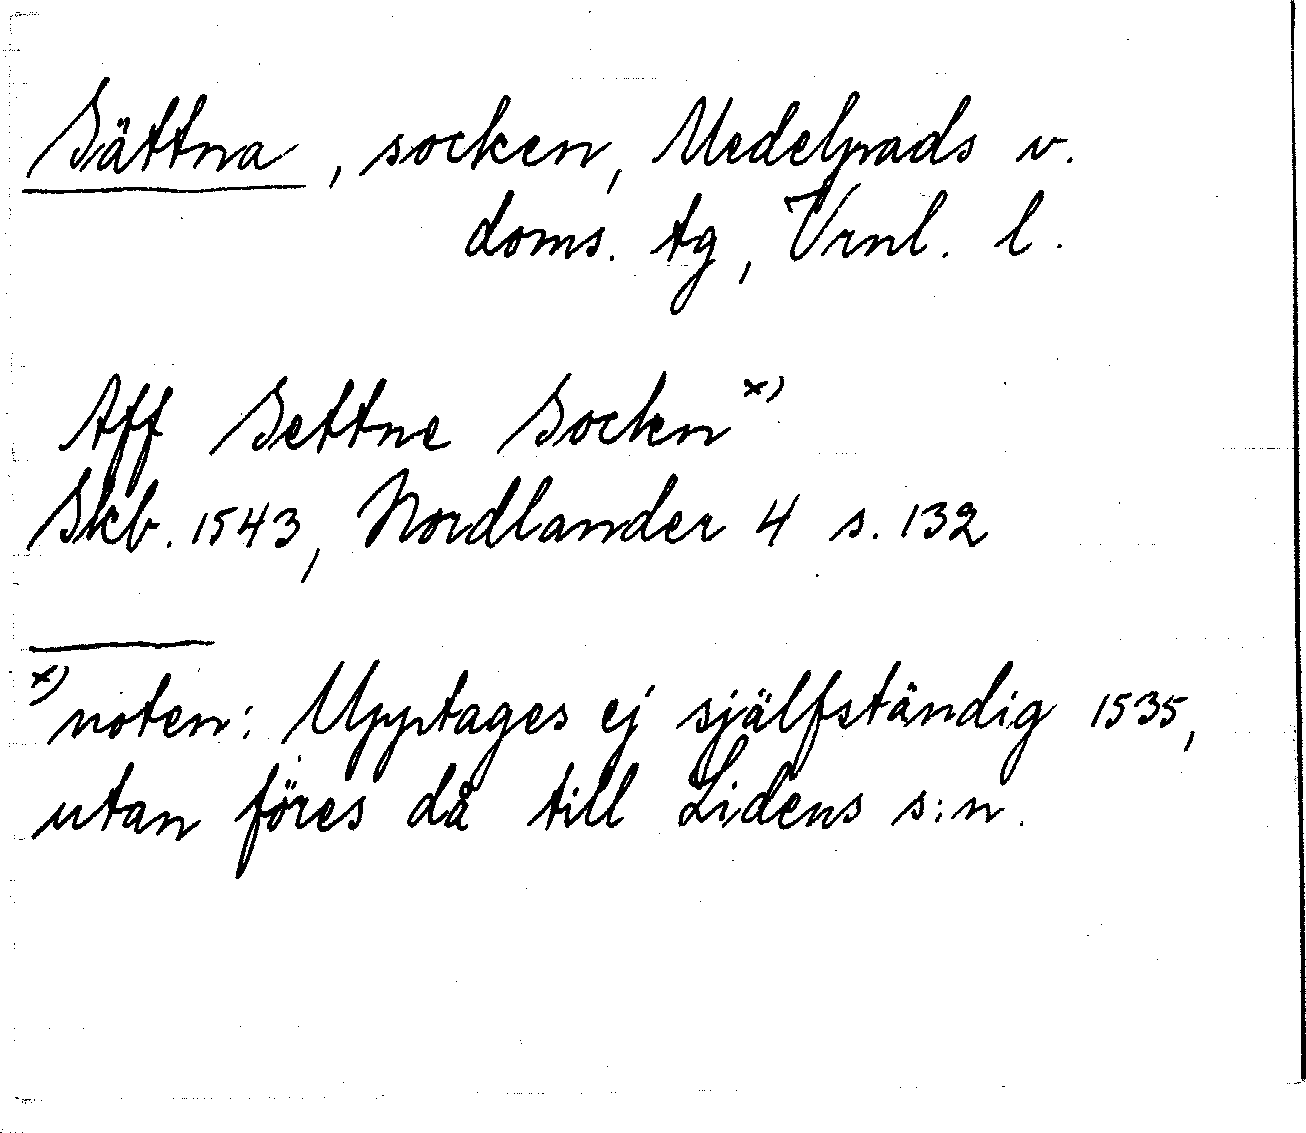 Sättna, socken, Medelpads v.
doms. tg, Vrnl. l.
Aff Settne Socken x)
Skb. 1543, Nordlander 4 s. 132
x) noten: Upptages ej själfständig 1535,
utan föres då till Lidens s:n.